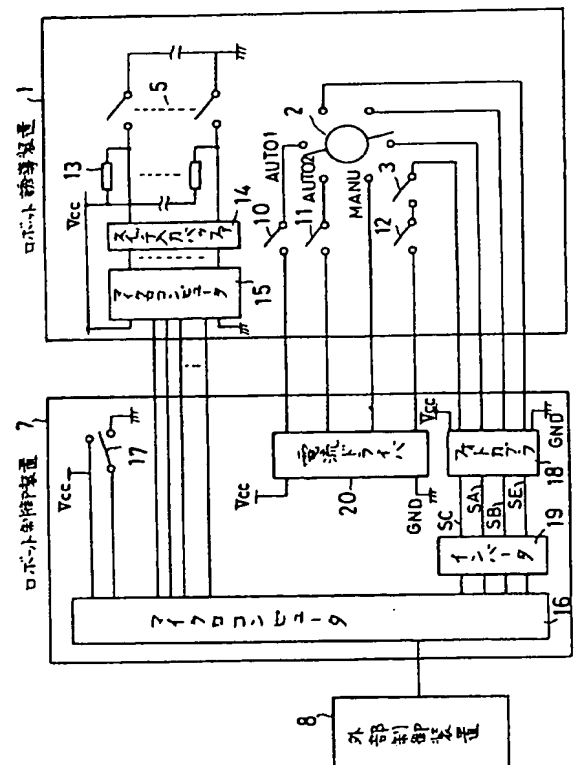 ロボット誘導装置
1
5
13
Vcc
14
スイッチ入力バッファ
マイクロコンピュータ
15
AUTO1
10
2
AUTO2
11
MANU
3
12
ロボット制御装置
7
Vcc
17
Vcc
電流ドライバ
20
GND
Vcc
フォトカプラ
GND
18
SC
SA
SB
SE
インバータ
19
マイクロコンピュータ
16
8
外部制御装置